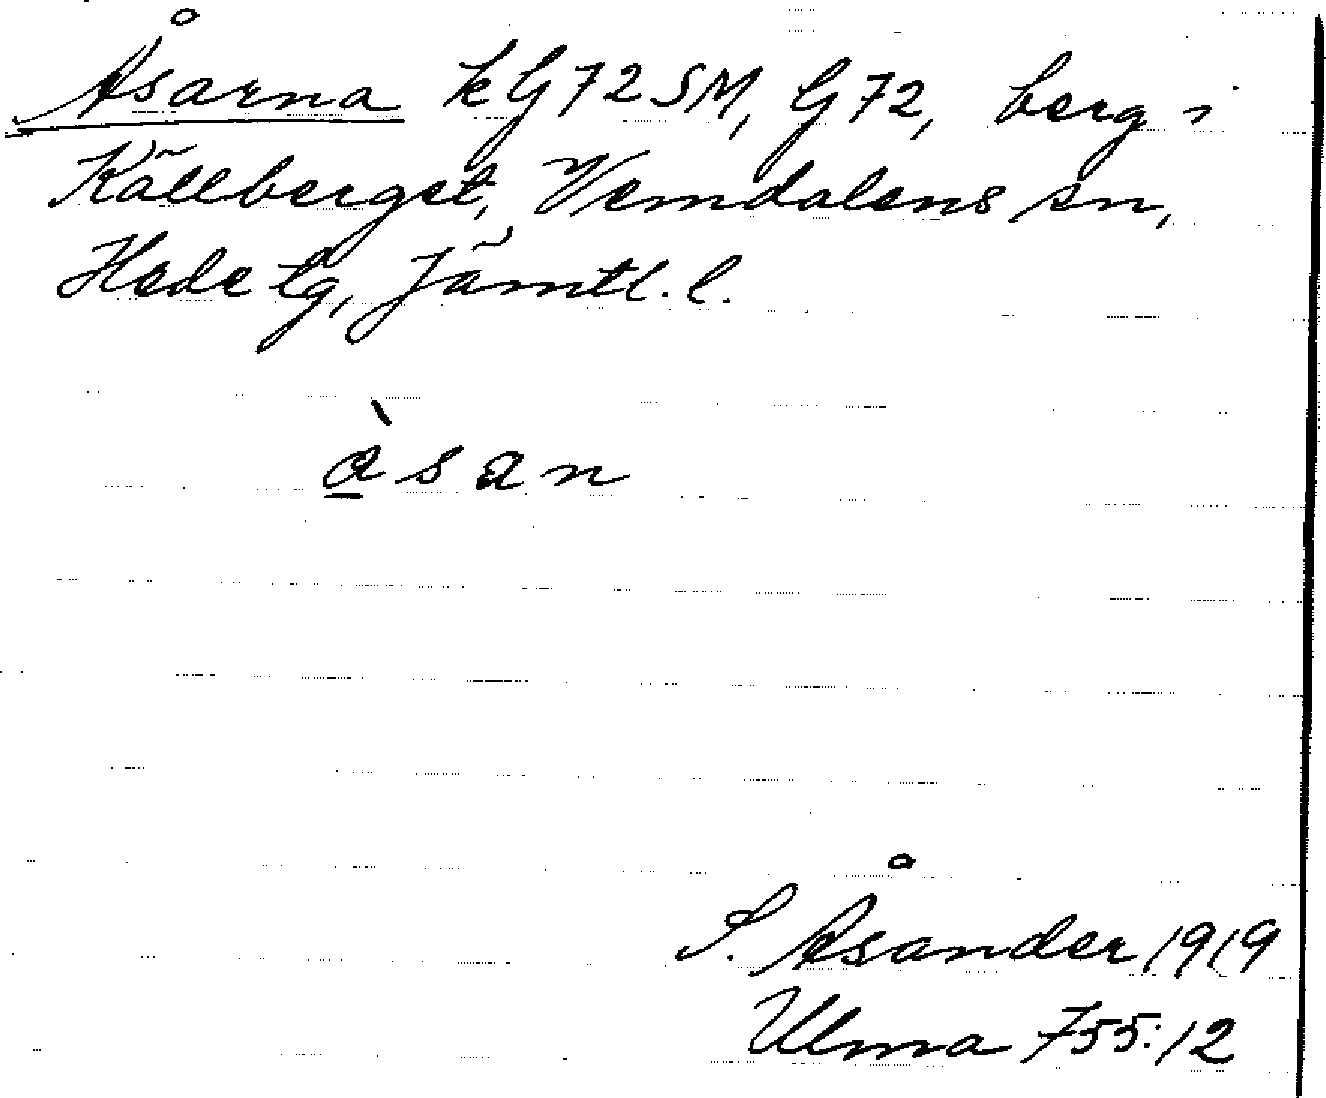 Åsarna kG72SM, G72, berg i
Källberget, Vemdalens sn,
Hede tg, Jämtl. l.
åsan
S. Åsander 1919
Ulma 755:12